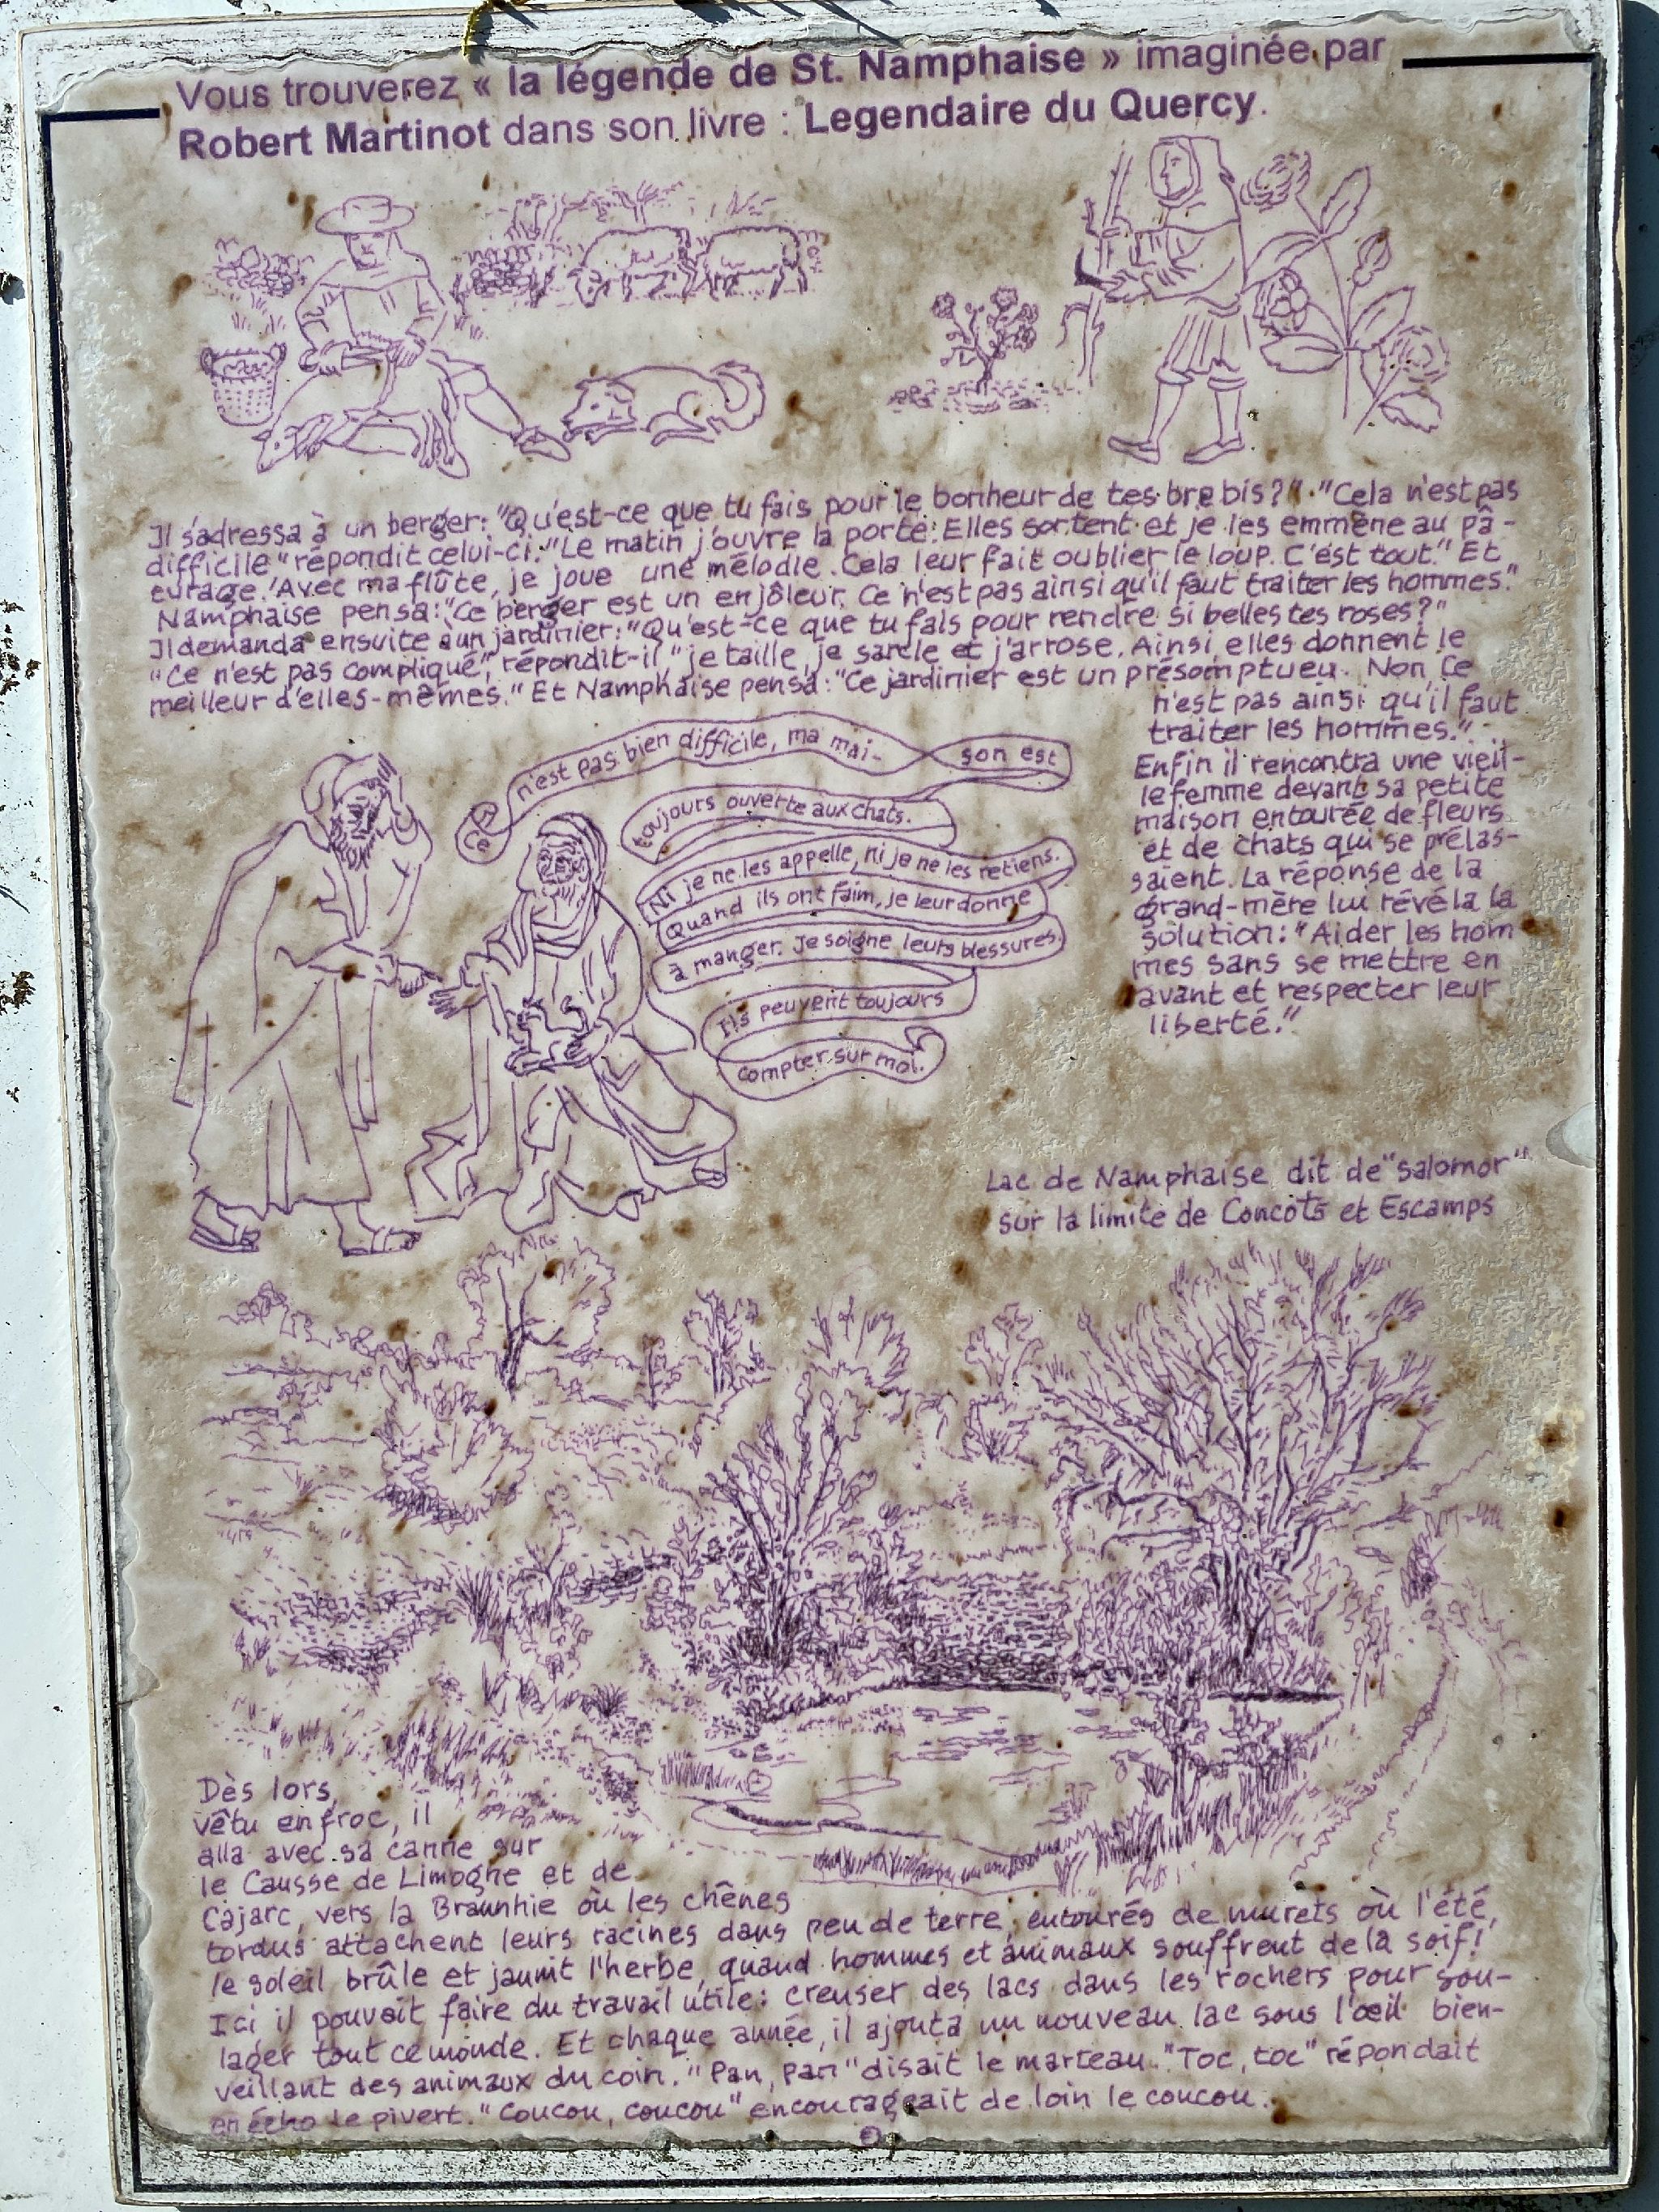 Vous trouverez « la légende de St. Namphaise » imaginée par
Robert Martinot dans son livre : Legendaire du Quercy.
Il s'adressa à un berger: "Qu'est-ce que tu fais pour le bonheur de tes brebis?" "Cela n'est pas
difficile" répondit celui-ci. "Le matin j'ouvre la porte. Elles sortent et je les emmène au pâ-
turage. Avec ma flûte, je joue une mélodie. Cela leur fait oublier le loup. C'est tout." Et
Namphaise pensa: "Ce berger est un enjôleur. Ce n'est pas ainsi qu'il faut traiter les hommes."
Il demanda ensuite à un jardinier: "Qu'est-ce que tu fais pour rendre si belles tes roses?"
"Ce n'est pas compliqué", répondit-il, "je taille, je sarcle et j'arrose. Ainsi elles donnent le
meilleur d'elles-mêmes." Et Namphaise pensa: "Ce jardinier est un présomptueu. Non, ce
n'est pas ainsi qu'il faut
traiter les hommes."
Enfin il rencontra une vieil-
le femme devant sa petite
maison entourée de fleurs
et de chats qui se prélas-
saient. La réponse de la
grand-mère lui révéla la
solution: "Aider les hom
mes sans se mettre en
avant et respecter leur
liberté."
Ce n'est pas bien difficile, ma mai-
son est
toujours ouverte aux chats.
Ni je ne les appelle, ni je ne les retiens.
Quand ils ont faim, je leur donne
à manger. Je soigne leurs blessures.
Ils peuvent toujours
compter sur moi.
Lac de Namphaise dit de "salomor"
sur la limite de Concots et Escamps
Dès lors,
vêtu en froc, il
alla avec sa canne sur
le Causse de Limogne et de
Cajarc, vers la Braunhie où les chênes
tordus attachent leurs racines dans peu de terre, entourés de murets où l'été,
le soleil brûle et jaunit l'herbe, quand hommes et animaux souffrent de la soif!
Ici il pouvait faire du travail utile: creuser des lacs dans les rochers pour sou-
lager tout ce monde. Et chaque année, il ajouta un nouveau lac sous l'œil bien-
veillant des animaux du coin. "Pan, pan" disait le marteau. "Toc, toc" répondait
en écho le pivert. "Coucou, coucou" encourageait de loin le coucou.